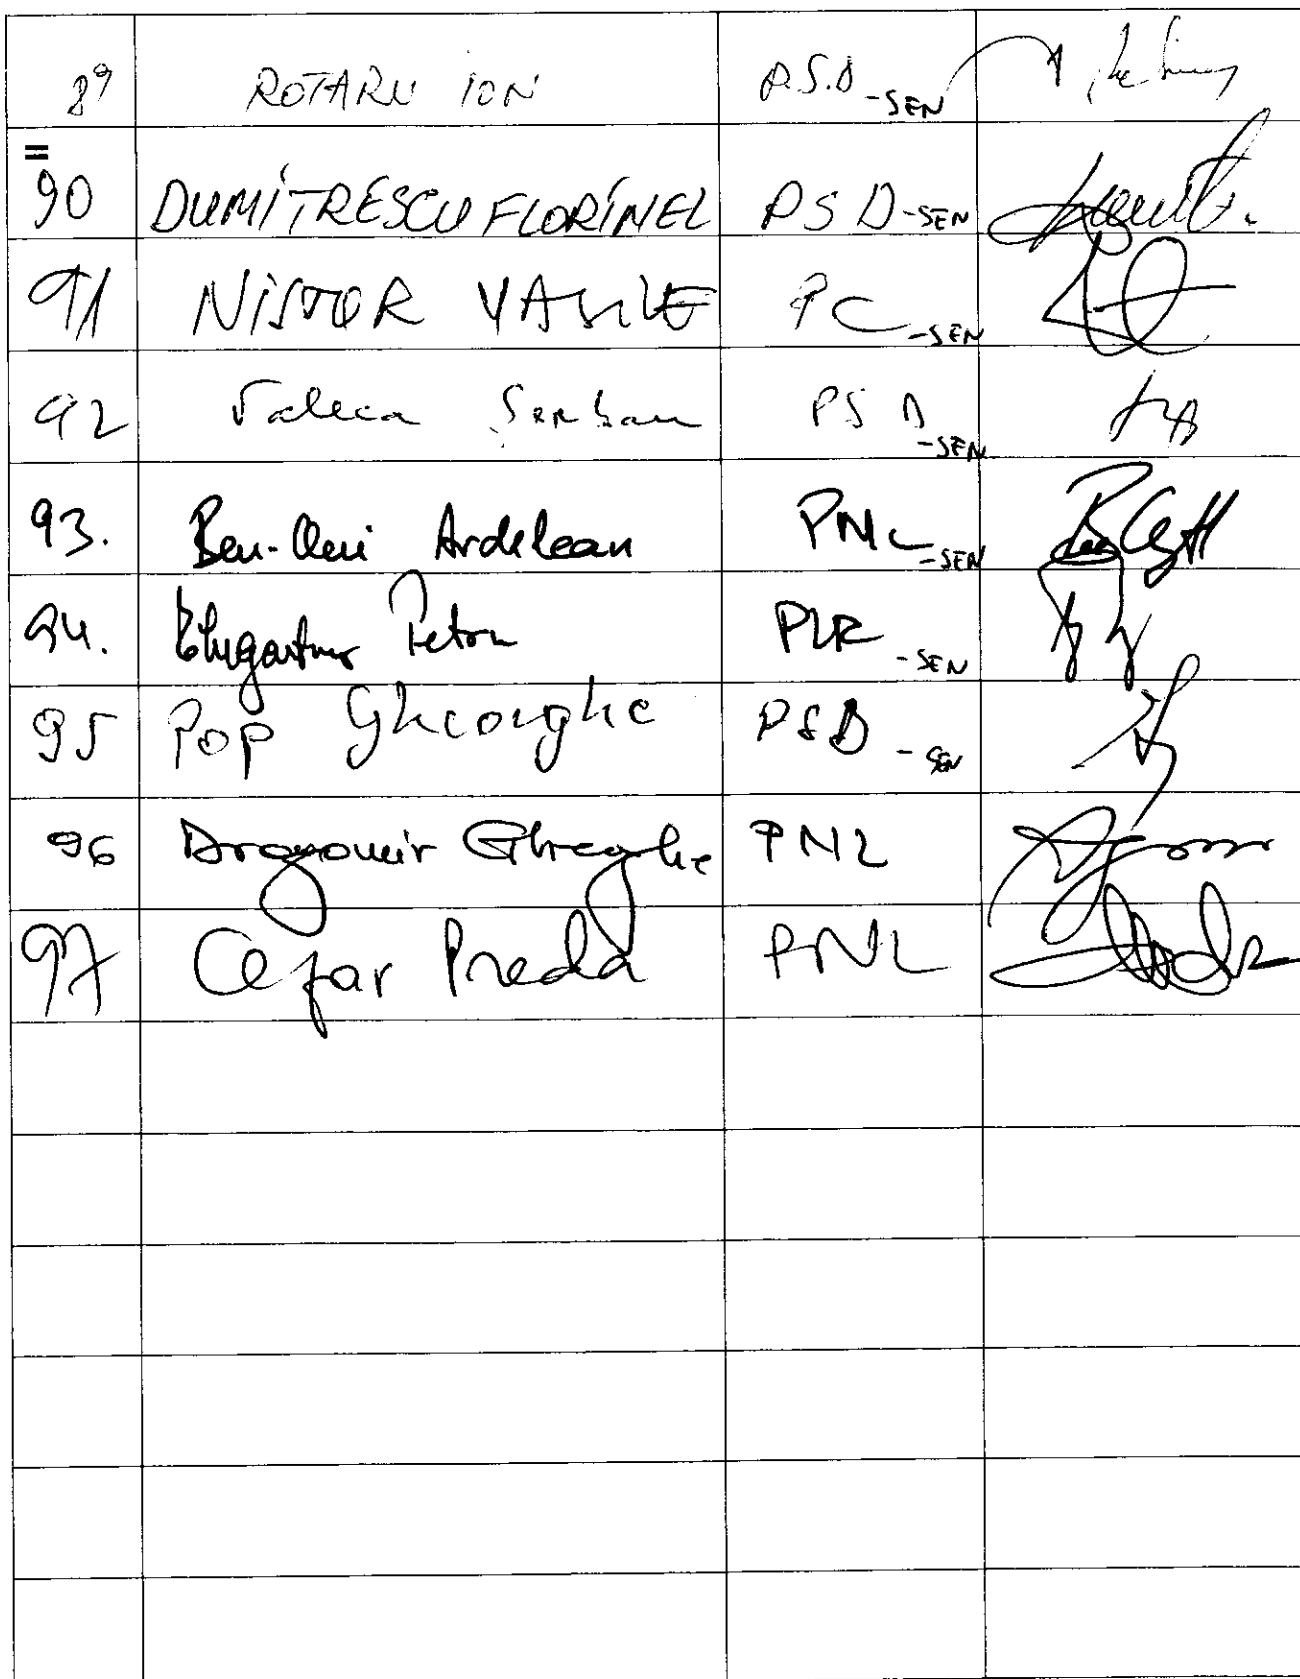 89 ROTARU ION P.S.D -SEN
90 DUMITRESCU FLORINEL PSD -SEN
91 NISTOR VASILE PC -SEN
92 Valeca Serban PSD -SEN
93. Ben-Oni Ardelean PNL -SEN
94. Ehegartner Petru PLR -SEN
95 Pop Gheorghe PSD -SEN
96 Dragomir Gheorghe PNL
97 Cezar Preda PNL